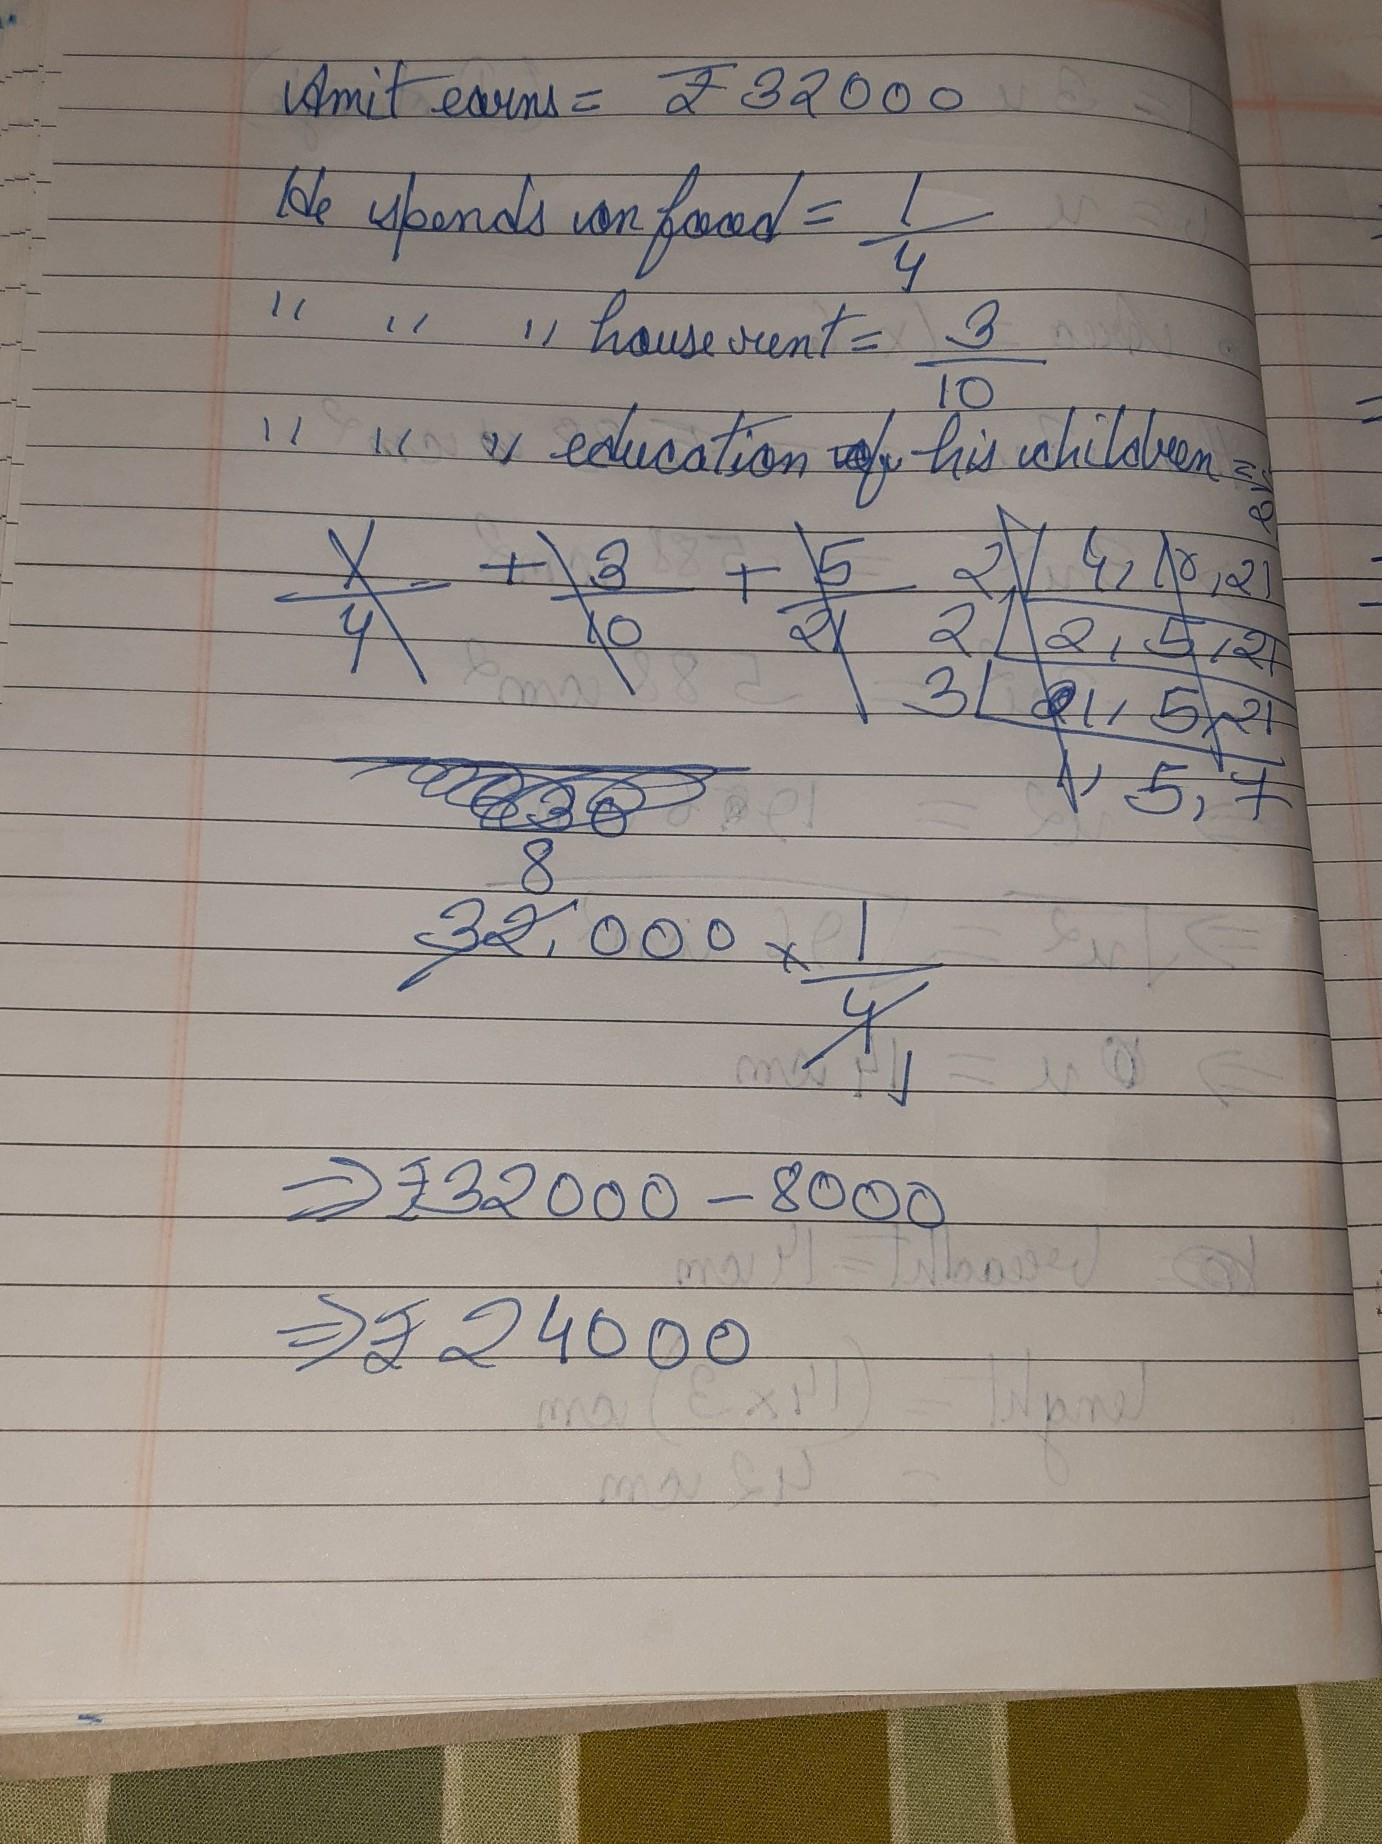 Amit earns = ₹ 32000
He spends on food = 1/4
" " " house rent = 3/10
" " " education of his children =
1/4 + 3/10 + 5/21
2 | 4, 10, 21
2 | 2, 5, 21
3 | 1, 5, 21
1, 5, 7
30
8
32,000 × 1/4
1
⇒ ₹32000 – 8000
⇒ ₹ 24000